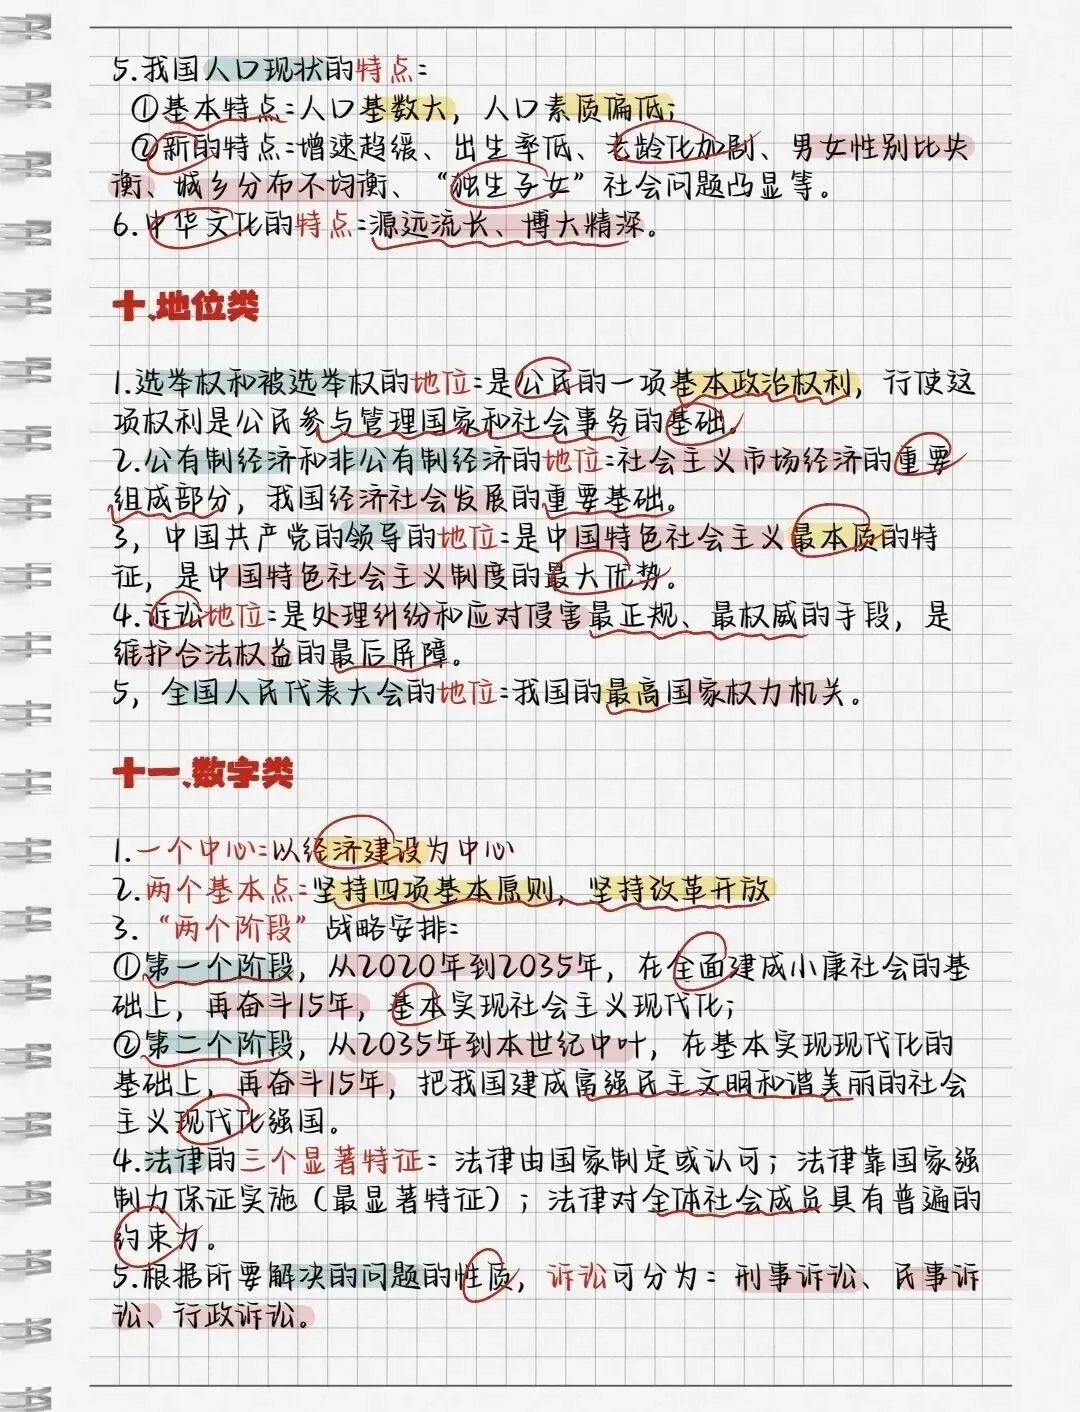 5.我国人口现状的特点:
①基本特点:人口基数大，人口素质偏低;
②新的特点:增速趋缓、出生率低、老龄化加剧、男女性别比失
衡、城乡分布不均衡、“独生子女”社会问题凸显等。
6.中华文化的特点:源远流长、博大精深。
十.地位类
1.选举权和被选举权的地位:是公民的一项基本政治权利，行使这
项权利是公民参与管理国家和社会事务的基础。
2.公有制经济和非公有制经济的地位:社会主义市场经济的重要
组成部分，我国经济社会发展的重要基础。
3，中国共产党的领导的地位:是中国特色社会主义最本质的特
征，是中国特色社会主义制度的最大优势。
4.诉讼地位:是处理纠纷和应对侵害最正规、最权威的手段，是
维护合法权益的最后屏障。
5，全国人民代表大会的地位:我国的最高国家权力机关。
十一.数字类
1.一个中心:以经济建设为中心
2.两个基本点:坚持四项基本原则，坚持改革开放
3.“两个阶段”战略安排:
①第一个阶段，从2020年到2035年，在全面建成小康社会的基
础上，再奋斗15年，基本实现社会主义现代化;
②第二个阶段，从2035年到本世纪中叶，在基本实现现代化的
基础上，再奋斗15年，把我国建成富强民主文明和谐美丽的社会
主义现代化强国。
4.法律的三个显著特征：法律由国家制定或认可；法律靠国家强
制力保证实施（最显著特征）；法律对全体社会成员具有普遍的
约束力。
5.根据所要解决的问题的性质，诉讼可分为：刑事诉讼、民事诉
讼、行政诉讼。